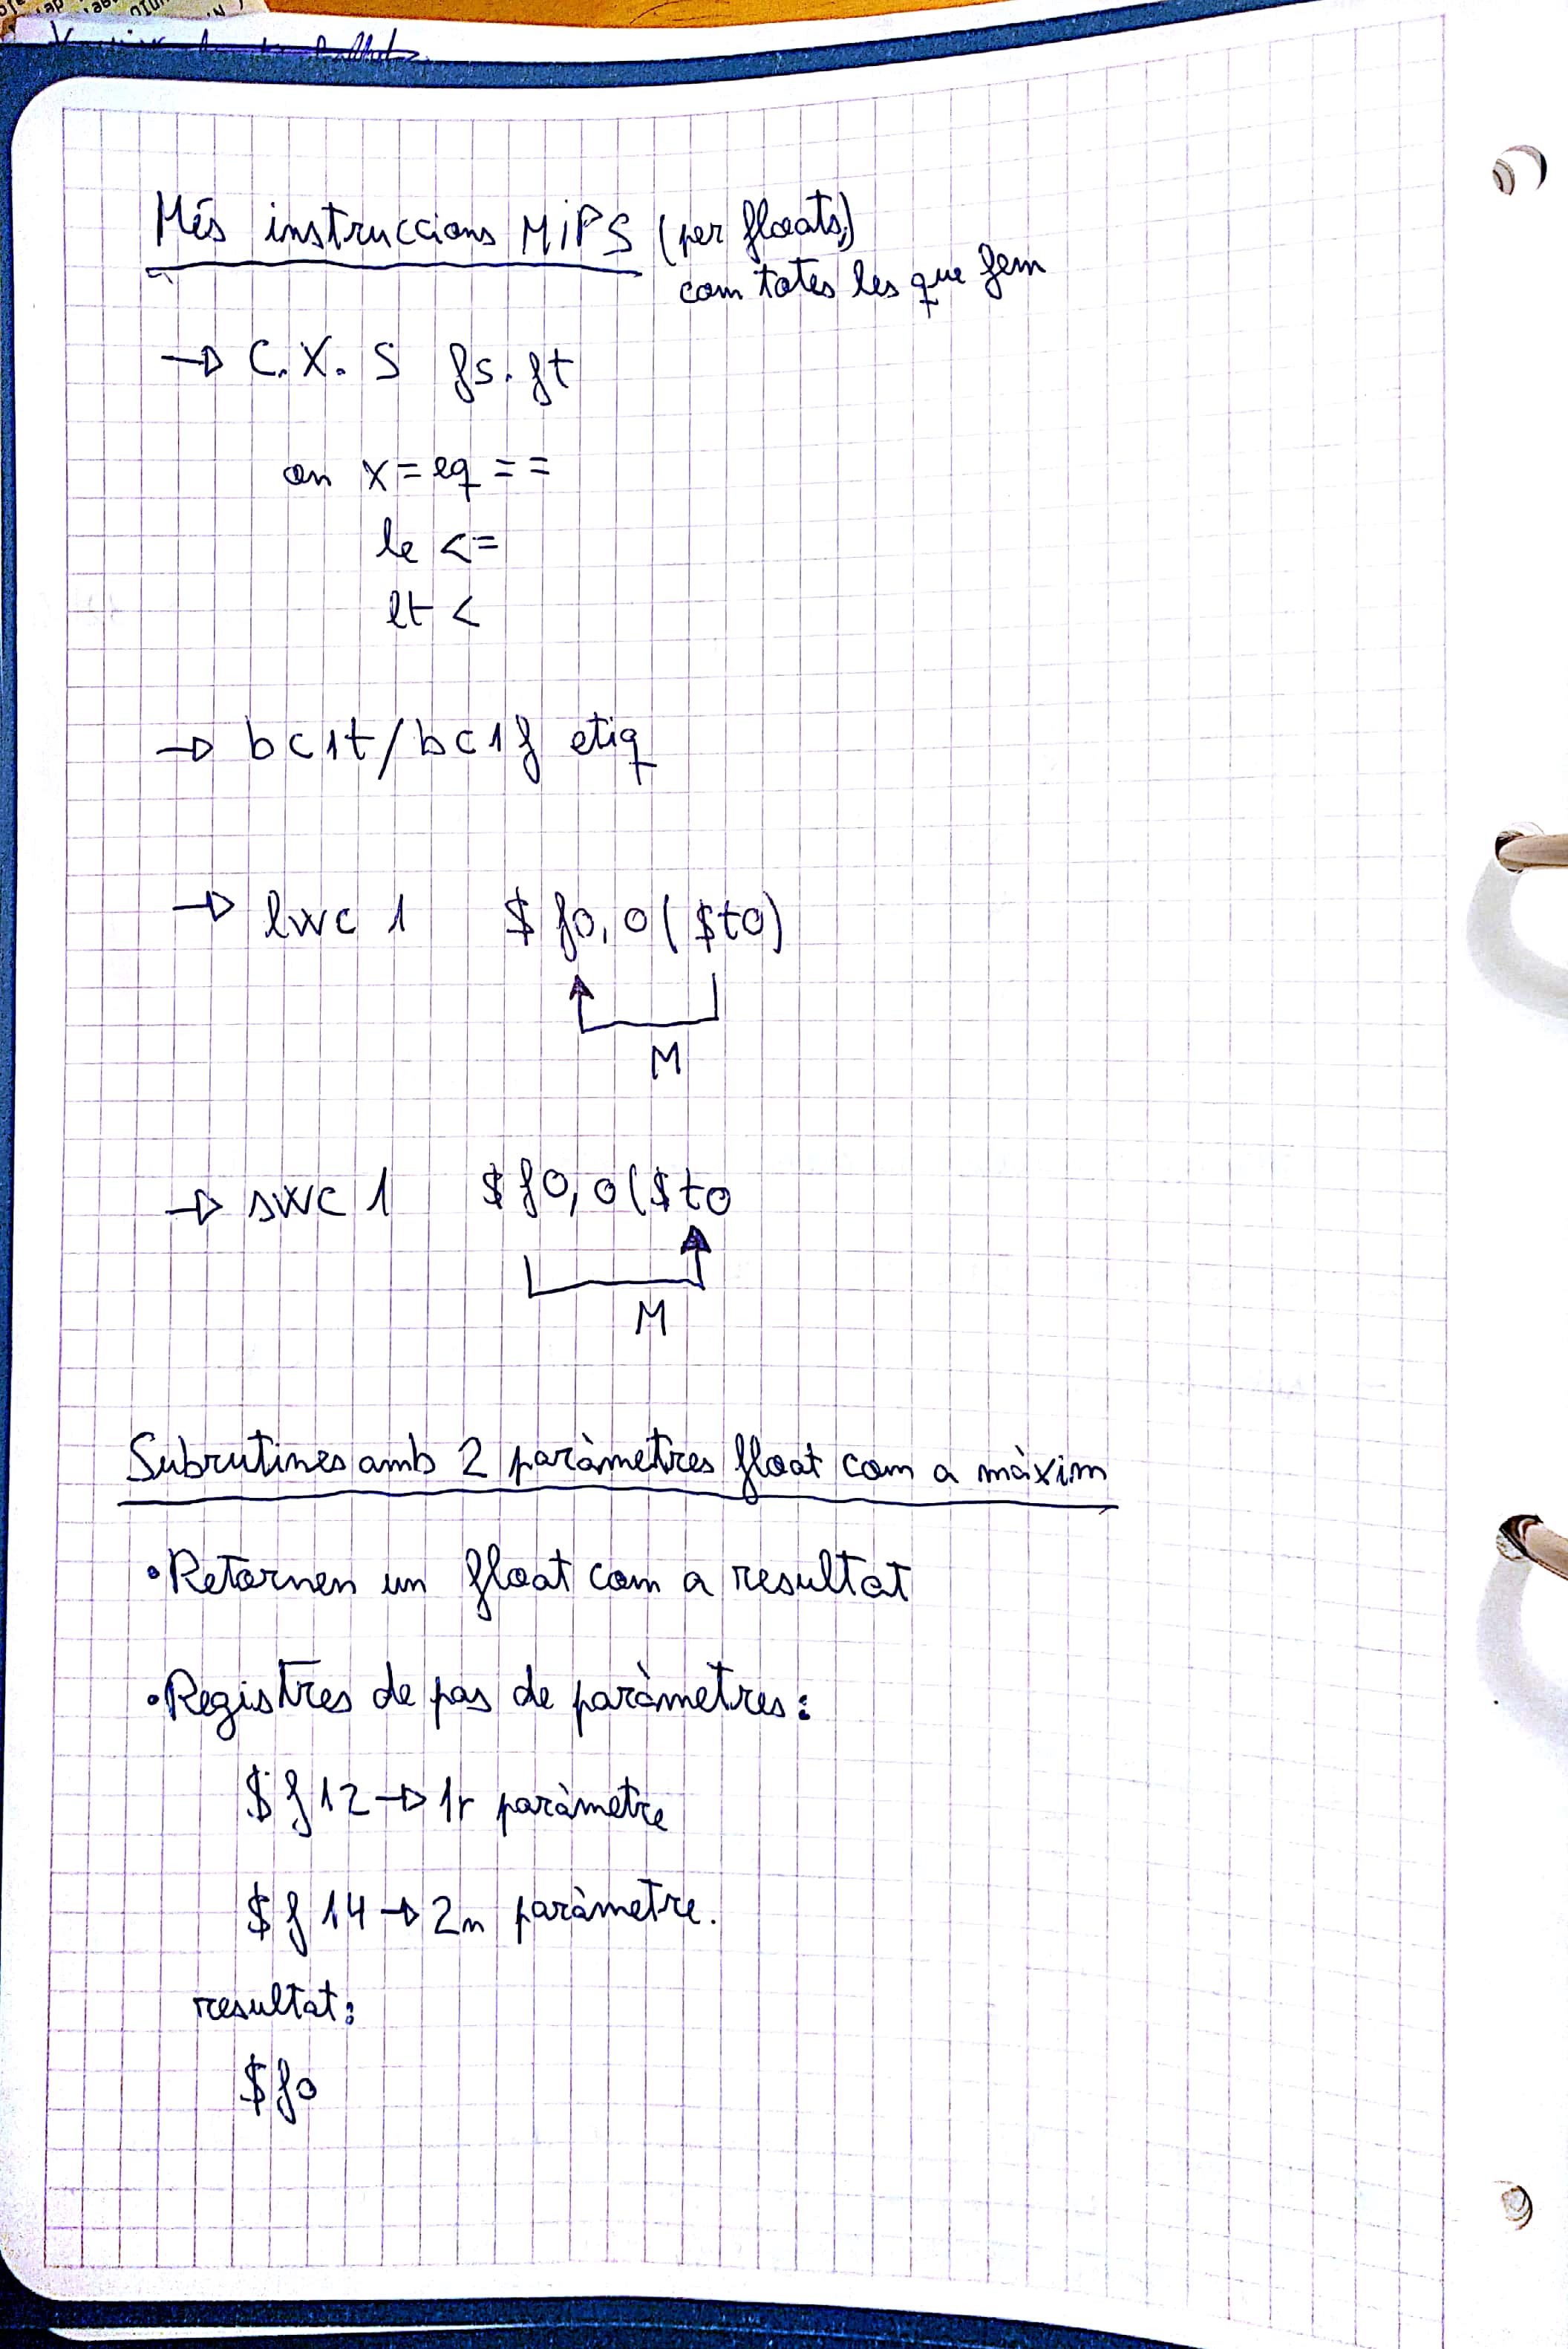 Més instruccions MiPS (per floats,)
com totes les que fem
→ C.X.S fs.ft
on x=eq ==
le <=
lt <
→ bc1t/bc1f etiq
→ lwc 1 $f0,0($t0)
M
→ swc 1 $f0,0($t0
M
Subrutines amb 2 paràmetres float com a màxim
• Retornen un float com a resultat
• Registres de pas de paràmetres:
$f12 → 1r paràmetre
$f14 → 2n paràmetre.
resultat:
$f0